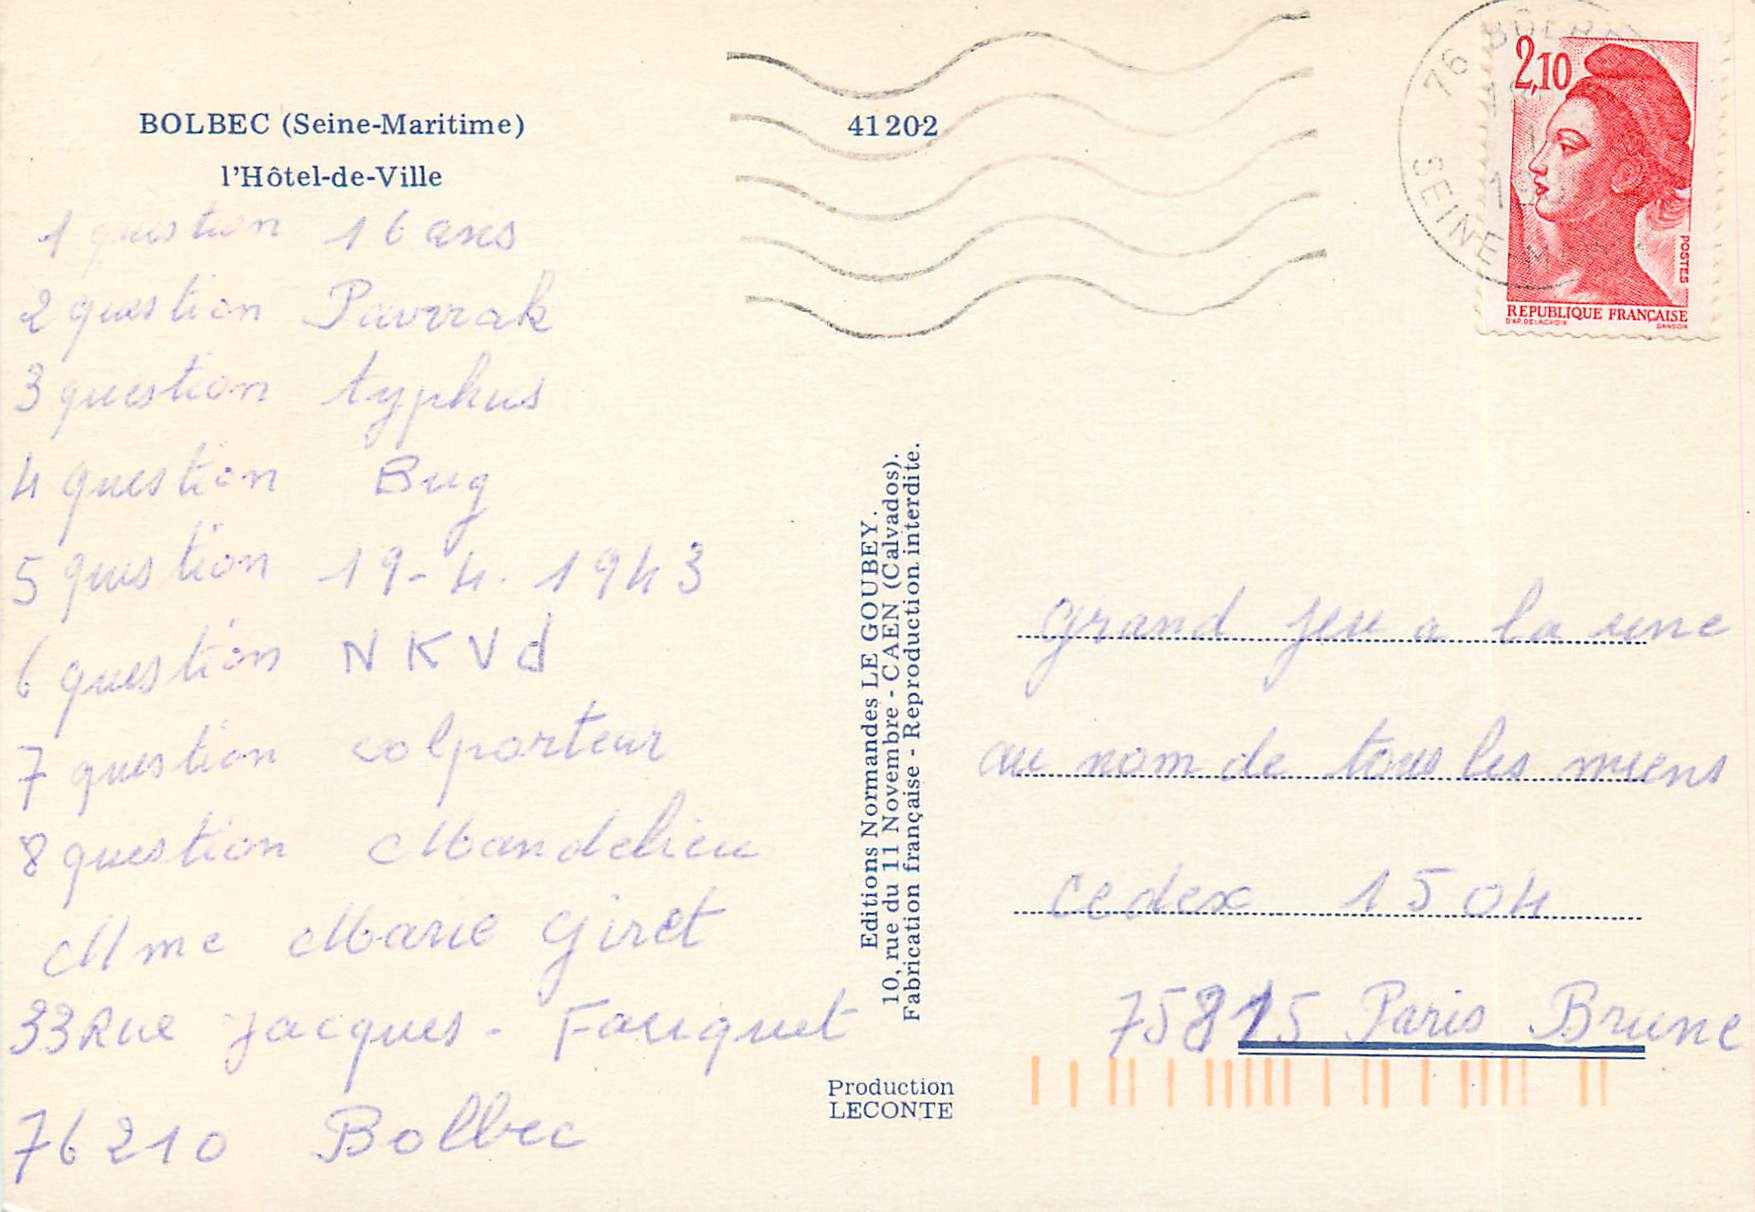 BOLBEC (Seine-Maritime)
l'Hôtel-de-Ville
41202
1 question 16 ans
2 question Pavrrak
3 question typhus
4 question Bug
5 question 19-4.1943
6 question NKVd
7 question colporteur
8 question Mandelieu
Mme Marie Giret
33 Rue Jacques-Fauquet
76210 Bolbec
Editions Normandes LE GOUBEY.
10, rue du 11 Novembre - CAEN (Calvados).
Fabrication française - Reproduction interdite.
Production
LECONTE
76 BOLBEC
SEINE M
2,10
POSTES
REPUBLIQUE FRANÇAISE
D'AP. DELACROIX GANDON
grand jeu a la une
au nom de tous les miens
cedex 1504
75815 Paris Brune